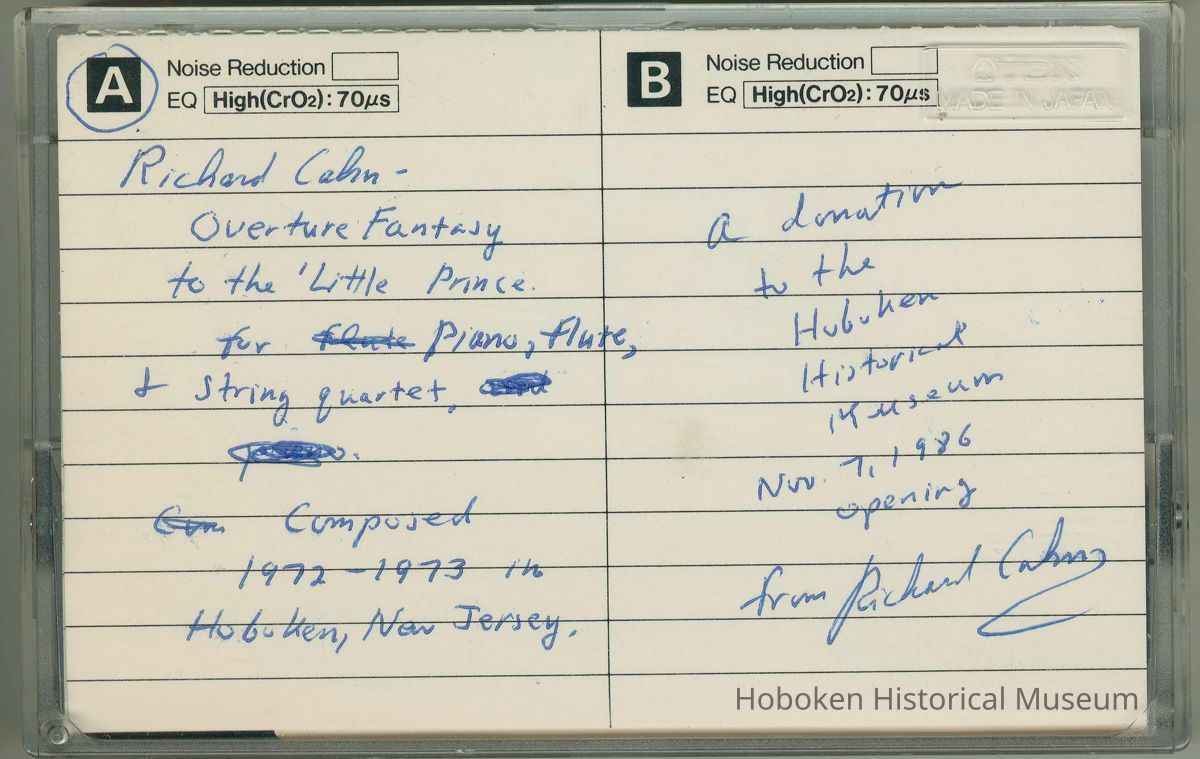 A
Noise Reduction
EQ High(CrO2): 70µs
Richard Cahn -
Overture Fantasy
to the 'Little Prince.
for flute Piano, Flute,
& String quartet, and
piano.
Com Composed
1972 - 1973 in
Hoboken, New Jersey.
B
Noise Reduction
EQ High(CrO2): 70µs
TDK
MADE IN JAPAN
a donation
to the
Hoboken
Historical
Museum
Nov. 7, 1986
opening
from Richard Cahn
Hoboken Historical Museum